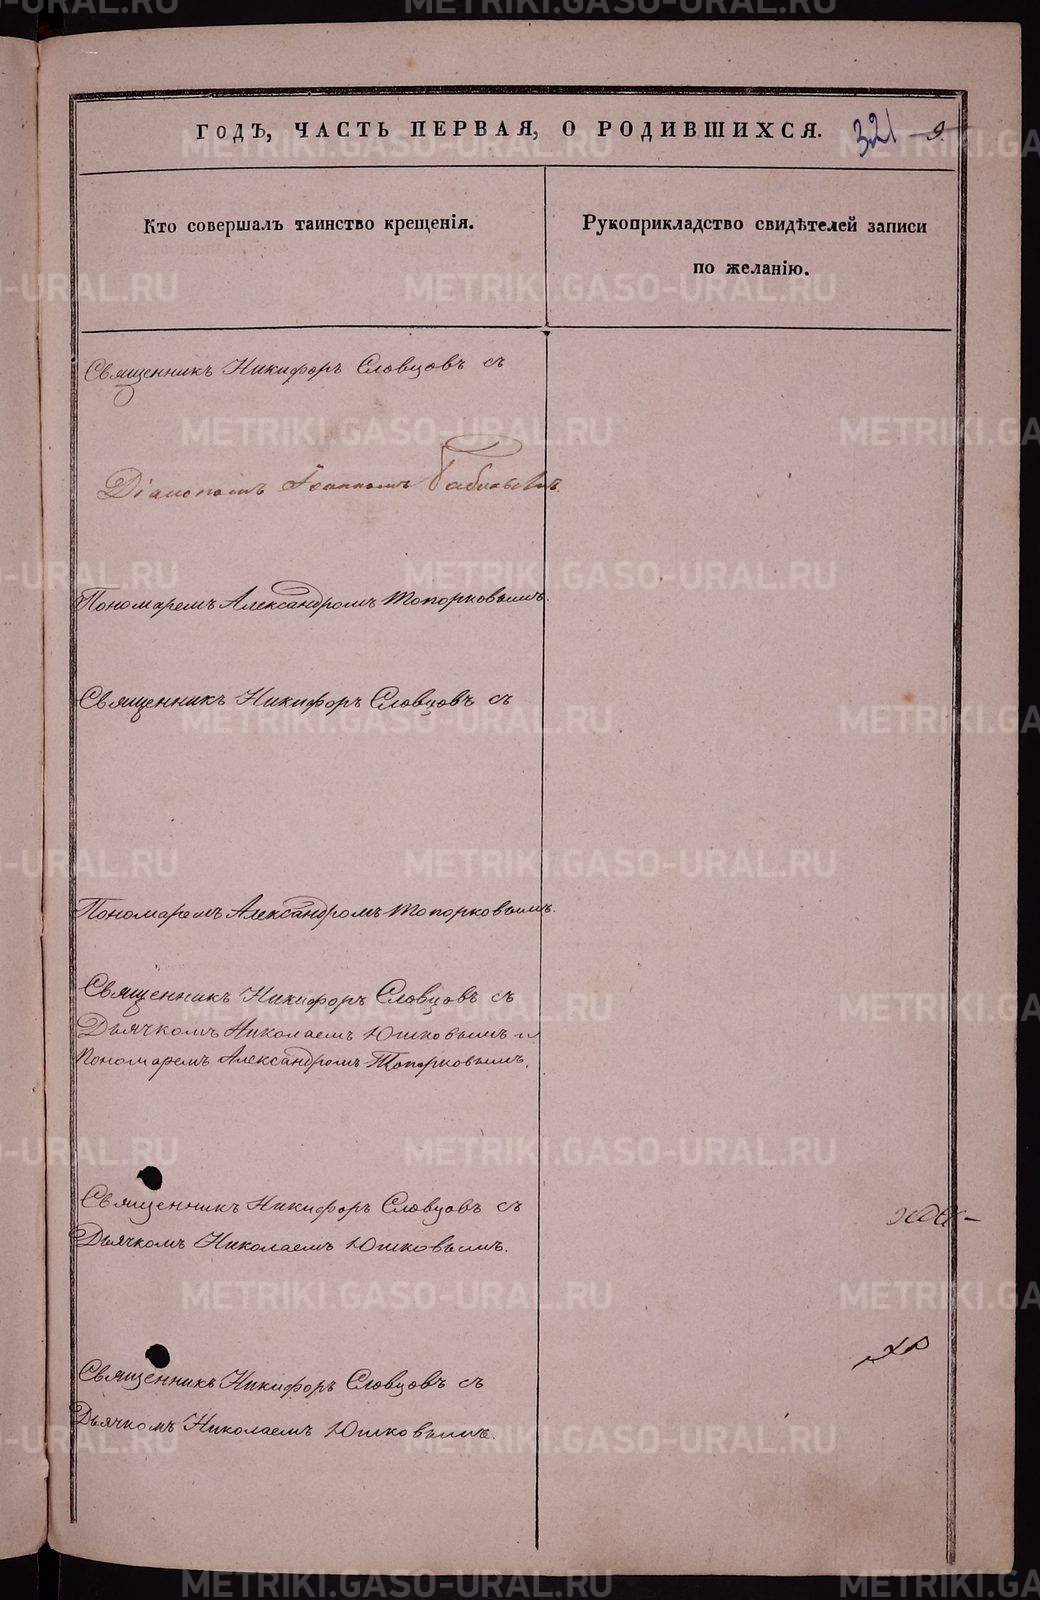 ГОДЪ, ЧАСТЬ ПЕРВАЯ, О РОДИВШИХСЯ. 321 9.
Кто совершалъ таинство крещенія.
Рукоприкладство свидѣтелей записи
по желанію.
Священникъ Никифоръ Словцовъ съ
Діакономъ Іоанномъ
Пономаремъ Александромъ Топорковымъ.
Священникъ Никифоръ Словцовъ съ
Пономаремъ Александромъ Топорковымъ.
Священникъ Никифоръ Словцовъ съ
Дьячкомъ Николаемъ Юшковымъ и
Пономаремъ Александромъ Топорковымъ.
Священникъ Никифоръ Словцовъ съ
Дьячкомъ Николаемъ Юшковымъ.
Священникъ Никифоръ Словцовъ съ
Дьячкомъ Николаемъ Юшковымъ.
METRIKI.GASO-URAL.RU